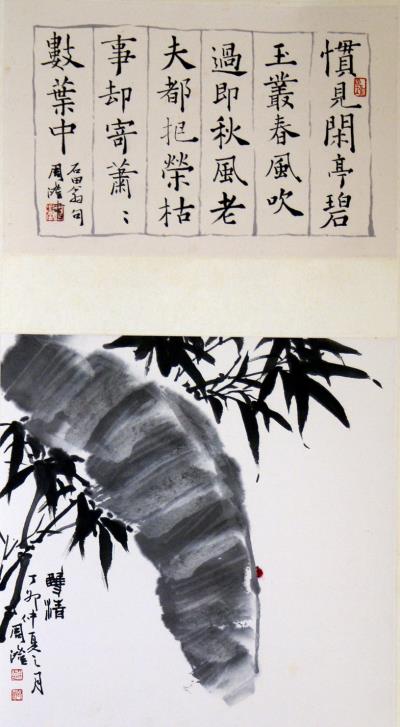 慣見閑亭碧
玉叢春風吹
過即秋風老
夫都把榮枯
事却寄蕭〻
數葉中
石田翁句
周澄
雙清
丁卯仲夏之月
周澄